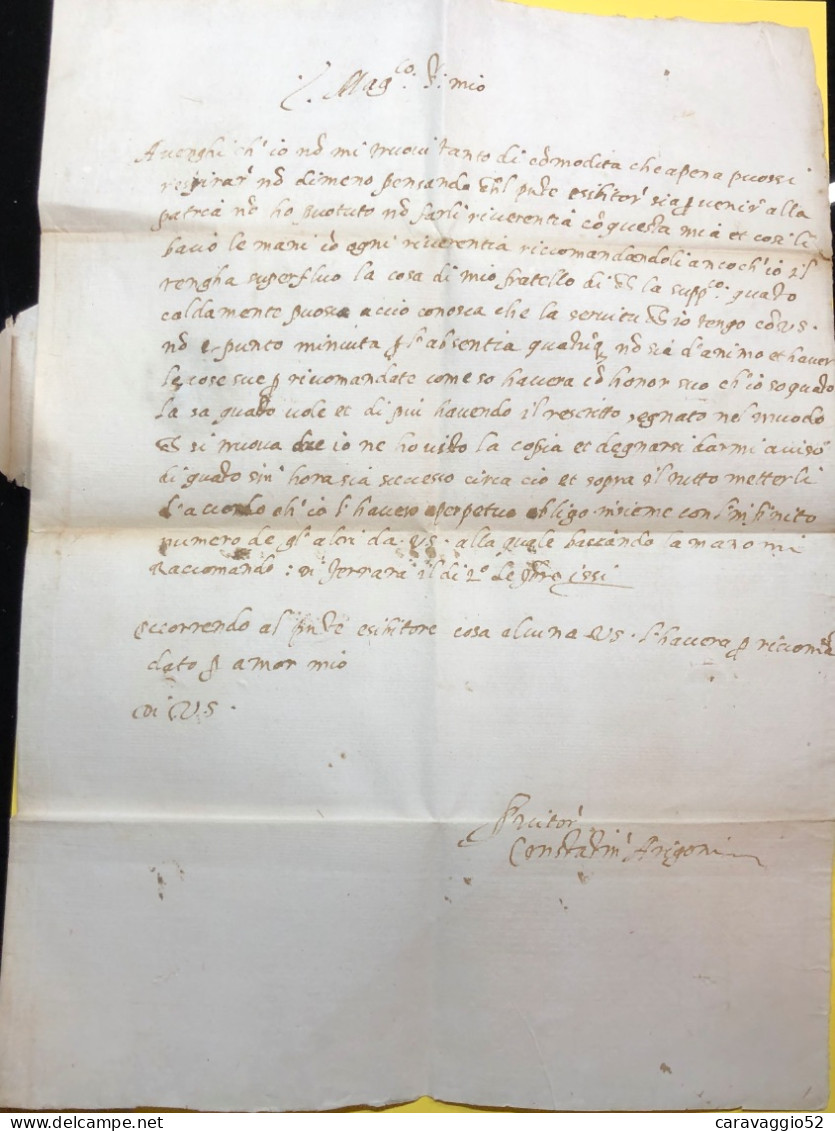 Mag.co S. mio
Avenghi ch'io nō mi truovi tanto di cōmodita che apena puossi
respirar' nō dimeno pensando ch'l pnte esibitor' sia p venir' alla
patria nō ho puotuto nō farli riverentia cō questa mia et cosi li
bacio le mani cō ogni riverentia riccomandandoli anco ch'io il
tengha superfluo la cosa di mio fratello di la supp.co quāto
caldamente puosso accio conosca che la servitu ch'io tengo cō V.S.
nō e punto minuita p l'absentia nō sia d'animo et haver
le cose sue p ricomandate come so havera cō honor suo ch'io so quāto
la sa quāto vole et di piu havendo il rescritto segnato nel muodo
si truova che io ne ho visto la copia et degnarsi darmi aviso
di quāto sin' hora sia successo circa cio et sopra il tutto metterli
d'acordo ch'io l'havero perpetuo obligo insieme con l'infinito
numero de gl'altri da V.S. alla quale basciando la mano mi
Raccomando: di Ferrara il di 2º de
Occorrendo al pnte esibitore cosa alcuna V.S. l'havera p riccomā
dato p amor mio
Di V.S.
Servitor'
Constātin' Arigoni
caravaggio52